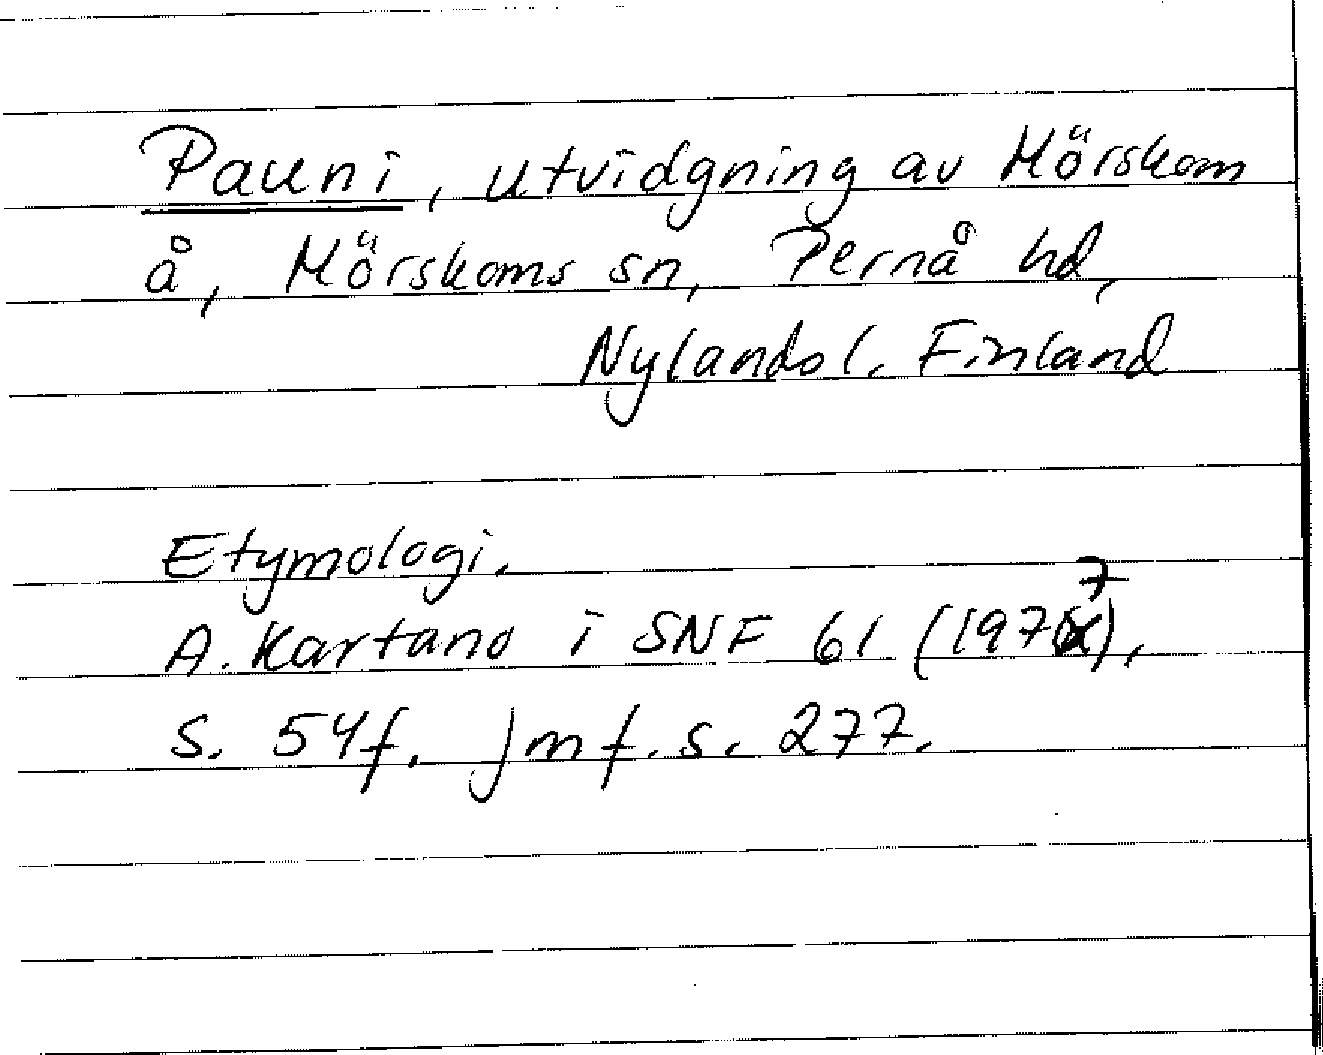 Pauni, utvidgning av Mörskom
å, Mörskoms sn, Pernå hd,
Nylands l. Finland
Etymologi.
A. Kartano i SNF 61 (1977),
s. 54f. Jmf. s. 277.